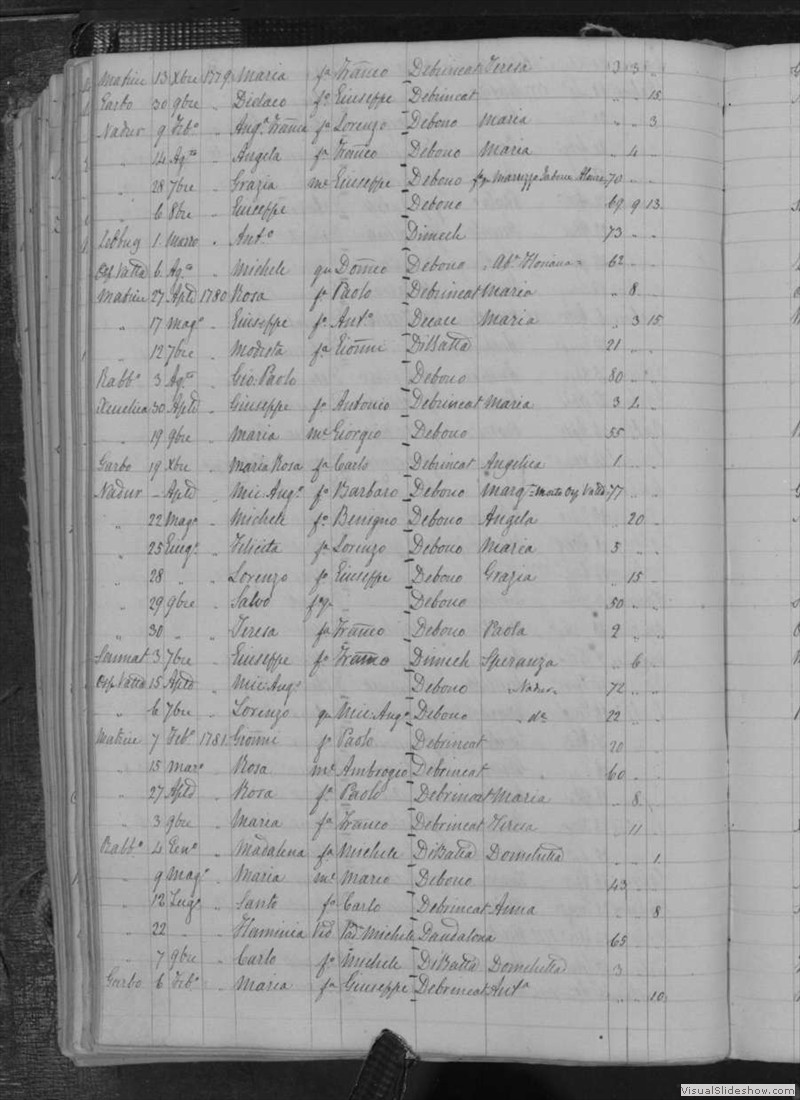 Matrice 13 Xbre 1779 Maria fa Franco Debrincat Teresa 3 3 "
Garbo 30 9bre " Didaco fo Giuseppe Debrincat " " 15
Nadur 9 Febo " Ango Franca fa Lorenzo Debono Maria " " 3
" 14 Agto " Angela fa Franco Debono Maria " 4 "
" 28 7bre " Grazia me Giuseppe Debono 70 " "
" 6 8bre " Giuseppe Debono 69 9 13
Zebbug 1 Marzo " Anto Dimech 73 " "
Osp Vallta 6 Ago " Michele qm Domco Debono Abe Floriana 62 " "
Matrice 27 Aple 1780 Rosa fa Paolo Debrincat Maria " 8 "
" 17 Mago " Giuseppe fo Anto Decace Maria " 3 15
" 12 7bre " Modesta fa Gionni DiBatta 21 " "
Rabbo 3 Ago " Gio Paolo Debono 80 " "
Xeuchia 30 Aple " Giuseppe fo Antonio Debrincat Maria 3 4 "
" 19 9bre " Maria me Giorgio Debono 55 " "
Garbo 19 Xbre " Maria Rosa fa Carlo Debrincat Angelica 1 " "
Nadur - Aple " Mic: Ango fo Barbaro Debono Marga Morto Osp Vallta 77
" 22 Mago " Michele fo Benigno Debono Angela " 20 "
" 25 Giugo " Felicita fa Lorenzo Debono Maria 5 " "
" 28 " " Lorenzo fo Giuseppe Debono Grazia " 15 "
" 29 9bre " Salvo Debono 50 " "
" 30 " " Teresa fa Franco Debono Paola 2 " "
Sannat 3 7bre " Giuseppe fo Franco Dimech Speranza " 6 "
Osp Vallta 15 Aple " Mic: Ango Debono Nadur 72 " "
" 6 7bre " Lorenzo qm Mic: Ango Debono do 22 " "
Matrice 7 Febo 1781 Gionni fo Paolo Debrincat 20 " "
" 15 Maro " Rosa me Ambrogio Debrincat 60 " "
" 27 Aple " Rosa fa Paolo Debrincat Maria " 8 "
" 3 9bre " Maria fa Franco Debrincat Teresa " 11 "
Rabbo 4 Geno " Madalena fa Michele DiBatta Domchilla " " 1
" 9 Mago " Maria me Mario Debono 43 " "
" 12 Lugo " Santo fo Carlo Debrincat Anna " " 8
" 22 " " Flaminia Vid Pad Michele Dandalona 65 " "
" 7 9bre " Carlo fo Michele DiBatta Domchilla 3 " "
Garbo 6 Febo " Maria fa Giuseppe Debrincat Anta " " 10
VisualSlideshow.com